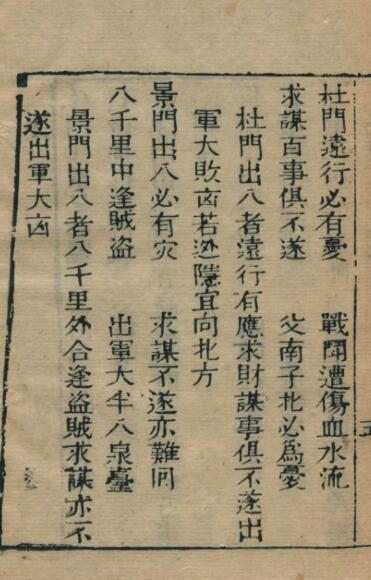 杜門遠行必有憂　戰鬪遭傷血水流
求謀百事俱不遂　父南子北必爲憂
杜門出入者遠行有應求財謀事俱不遂出
軍大敗凶若逃隱宜向北方
景門出入必有灾　求謀不遂亦難回
八千里中逢賊盜　出軍大半入泉臺
景門出入者八千里外合逢盜賊求謀亦不
遂出軍大凶
五